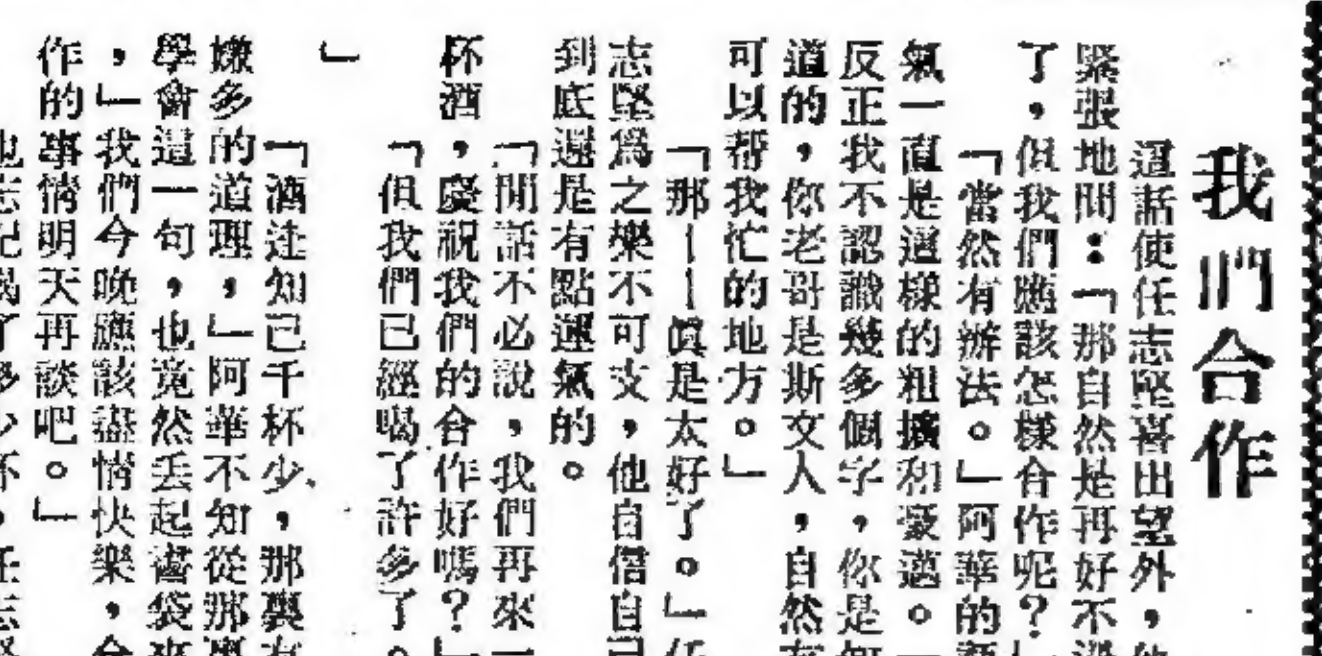 我們合作
這話使任志堅喜出望外，他
緊張地問：「那自然是再好不過
了，但我們應該怎樣合作呢？」
「當然有辦法。」阿華的語
氣一直是這樣的粗獷和豪邁。「
反正我不認識幾多個字，你是知
道的，你老哥是斯文人，自然有
可以帮我忙的地方。」
「那——眞是太好了。」任
志堅爲之樂不可支，他自信自己
到底還是有點運氣的。
「閒話不必說，我們再來一
杯酒，慶祝我們的合作好嗎？」
「但我們已經喝了許多了。
」
「酒逢知己千杯少，那裏有
嫌多的道理，」阿華不知從那裏
學會這一句，也竟然丢起書袋來
，」我們今晚應該盡情快樂，合
作的事情明天再談吧。」
他忘記喝了多少杯，任志堅